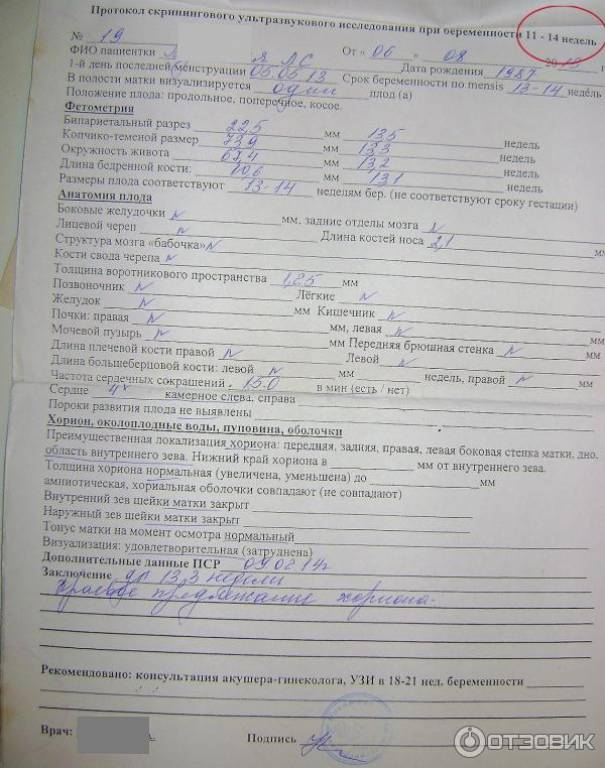 Протокол скринингового ультразвукового исследования при беременности 11 - 14 недель
№ 19 От « 06 » 08 2013 г
ФИО пациентки Л Я ЛС Дата рождения 1987
1-й день последней менструации 05.05.13 Срок беременности по mensis 13-14 недель
В полости матки визуализируется один плод (а)
Положение плода: продольное, поперечное, косое.
Фетометрия
Бипариетальный разрез 22,5 мм 13,5 недель
Копчико-теменой размер 73,9 мм 13,3 недель
Окружность живота 67,4 мм 13,2 недель
Длина бедренной кости: 10,6 мм 13,1 недель
Размеры плода соответствуют 13-14 неделям бер. (не соответствуют сроку гестации)
Анатомия плода
Боковые желудочки N мм. задние отделы мозга N
Лицевой череп N Длина костей носа 2,1 мм
Структура мозга «бабочка» N
Кости свода черепа N
Толщина воротникового пространства 1,25 мм
Позвоночник N Лёгкие N
Желудок N мм Кишечник N
Почки: правая N мм, левая N мм
Мочевой пузырь N мм Передняя брюшная стенка N
Длина плечевой кости правой N Левой N
Длина большеберцовой кости: левой N недель, правой N мм
Частота сердечных сокращений 150 в мин (есть / нет)
Сердце 4х камерное слева, справа
Пороки развития плода не выявлены
Хорион, околоплодные воды, пуповина, оболочки
Преимущественная локализация хориона: передняя, задняя, правая, левая боковая стенка матки, дно,
область внутреннего зева. Нижний край хориона в мм от внутреннего зева.
Толщина хориона нормальная (увеличена, уменьшена) до мм
амниотическая, хориальная оболочки совпадают (не совпадают)
Внутренний зев шейки матки закрыт
Наружный зев шейки матки закрыт
Тонус матки на момент осмотра нормальный
Визуализация: удовлетворительная (затруднена)
Дополнительные данные ПСР 09.02.14г
Заключение 13,3 недели
краевое предлежание хориона.
Рекомендовано: консультация акушера-гинеколога, УЗИ в 18-21 нед. беременности
Врач: Подпись
ОТЗОВИК